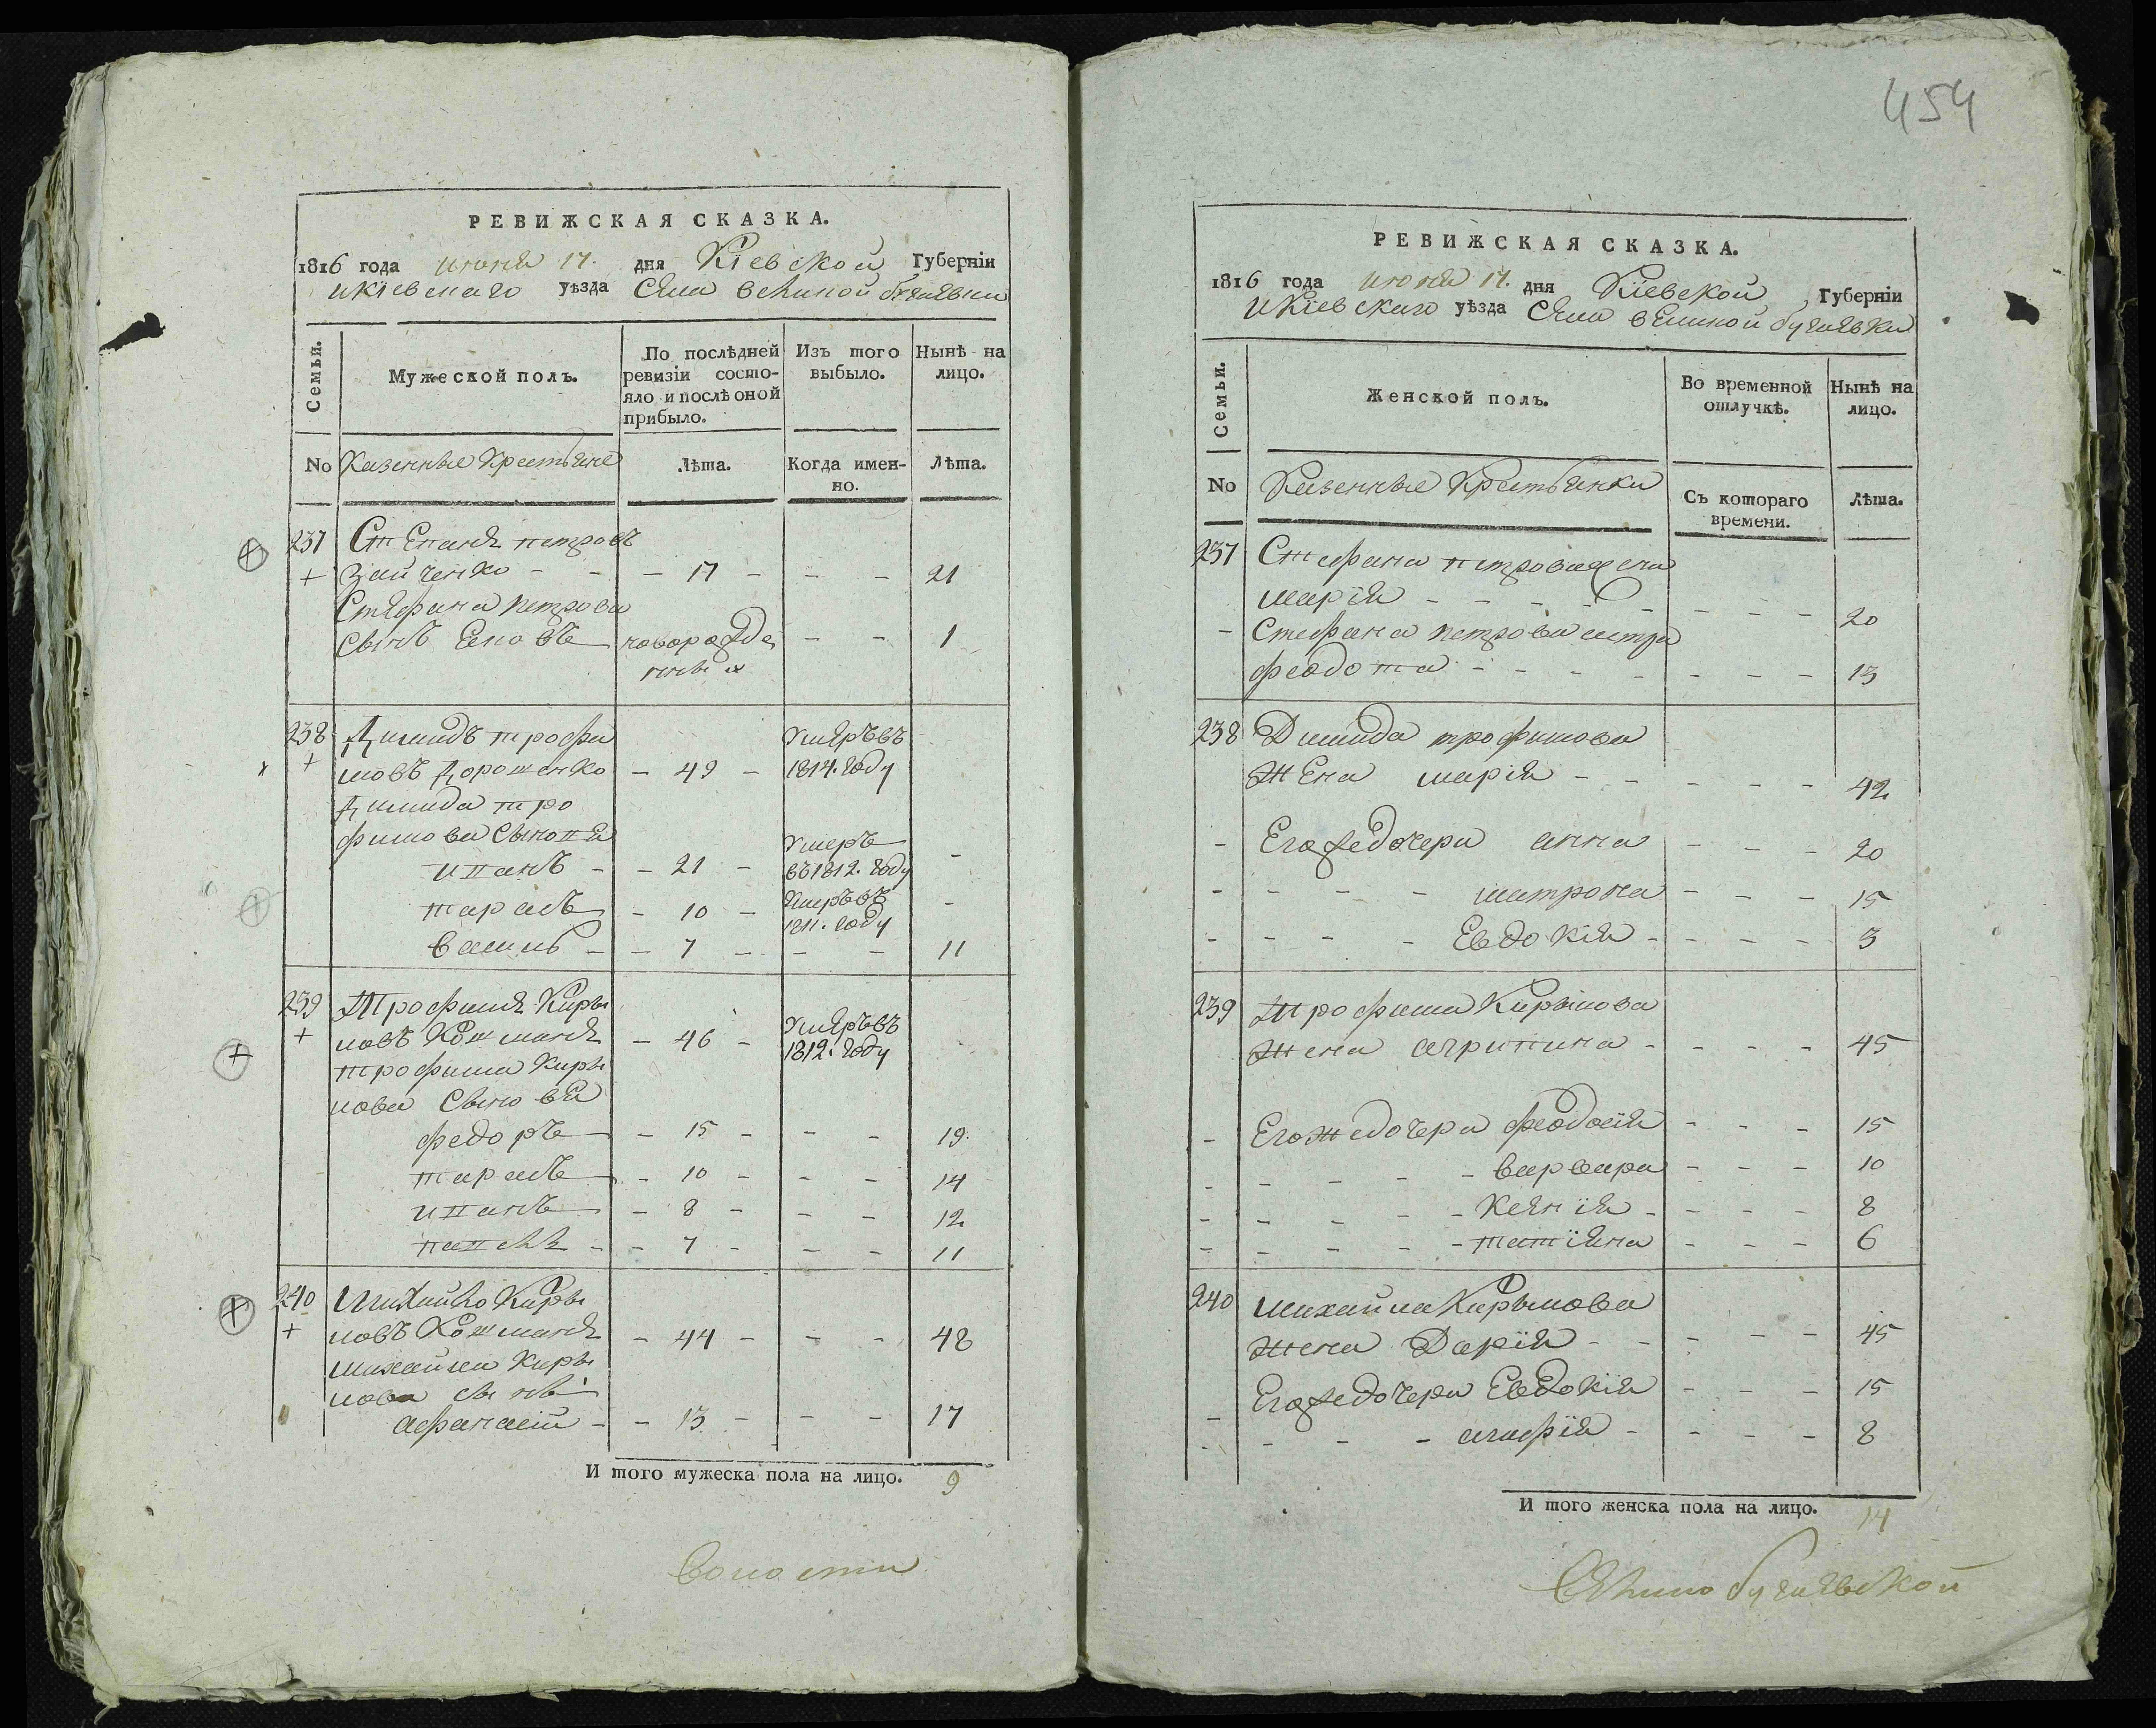 454
РЕВИЖСКАЯ СКАЗКА.
1816 года июня 17. дня Кіевской Губерніи
и Кіевскаго уѣзда села великой бугаевки
Семьи.
Мужеской полъ.
По послѣдней ревизіи состояло и послѣ оной прибыло.
Изъ того выбыло.
Нынѣ на лицо.
No Казенные Крестьяне
Лѣта.
Когда именно.
Лѣта.
237 Степанъ петровъ
+ Зайченко - - - 17 - - - 21
Стефана петрова
сынъ Яковъ новорожде - - 1
нный
238 Димидъ трофи Умеръ въ
+ мовъ Дорошенко - 49 - 1814. году
Димида тро
фимова сыновья
иванъ - - 21 - Умеръ въ 1812. году -
тарасъ - 10 - Умеръ въ 1811. году -
василь - - 7 - - - 11
239 Трофимъ Киры Умеръ въ
+ ловъ Кошманъ - 46 - 1812. году
трофима Киры
лова сыновья
федоръ - 15 - - - 19.
тарасъ - 10 - - - 14
иванъ - 8 - - - 12
павелъ - - 7 - - - 11
240 Михайло Киры
+ ловъ Кошманъ - 44 - - - 48
михайла Киры
лова сынъ
афанасій - - 13 - - - 17
И того мужеска пола на лицо. 9
волости
РЕВИЖСКАЯ СКАЗКА.
1816 года июня 17. дня Кіевской Губерніи
и Кіевскаго уѣзда села великой бугаевки
Семьи.
Женской полъ.
Во временной отлучкѣ.
Нынѣ на лицо.
No Казенные Крестьянки
Съ котораго времени.
Лѣта.
237 Стефана петрова жена
марія - - - - - - - - 20
- Стефана петрова сестра
феодота - - - - - - - 13
238 Димида трофимова
жена марія - - - - - 42
- Его же дочери анна - - - 20
- - - - матрона - - - 15
- - - - Евдокія - - - - 3
239 Трофима Кирылова
жена агрипина - - - - 45
- Его же дочери феодосія - - - 15
- - - - - варвара - - - 10
- - - - - Ксенія - - - - 8
- - - - - татіяна - - - 6
240 михайла Кирылова
жена Дарія - - - - - 45
- Его же дочери Евдокія - - - 15
- - - - агафія - - - - 8
И того женска пола на лицо. 14
Великобугаевской